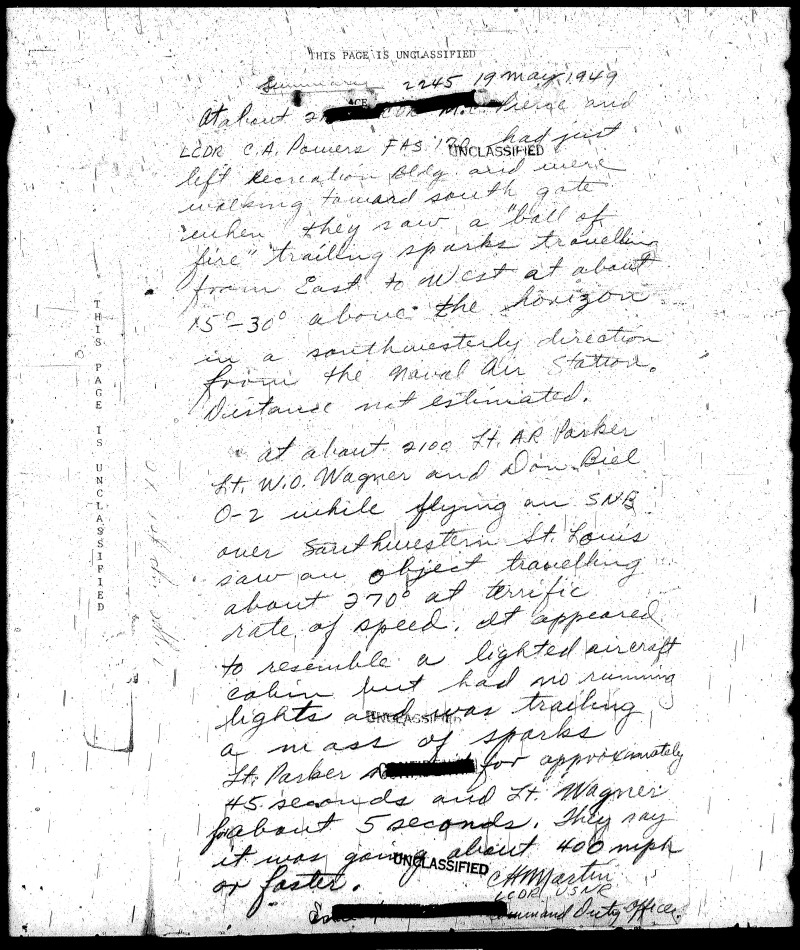 THIS PAGE IS UNCLASSIFIED
Summary 2245 19 May 1949
At about M.C. Pierce and
LCDR C.A. Powers FAS had just
UNCLASSIFIED
left Recreation Bldg and were
walking toward south gate
when they saw a "ball of
fire" trailing sparks travelling
from East to West at about
15°-30° above the horizon
in a southwesterly direction
from the Naval Air Station.
Distance not estimated.
At about 2100 Lt. A.R. Parker
Lt. W.O. Wagner and Don Biel
O-2 while flying an SNB
over Southwestern St. Louis
saw an object travelling
about 270° at terrific
rate of speed. It appeared
to resemble a lighted aircraft
cabin but had no running
lights and was trailing
UNCLASSIFIED
a mass of sparks
Lt. Parker for approximately
45 seconds and Lt. Wagner
for about 5 seconds. They say
it was going about 400 mph
UNCLASSIFIED
or faster.
CHMartin
LCDR USNR
Command Duty Officer
THIS PAGE IS UNCLASSIFIED